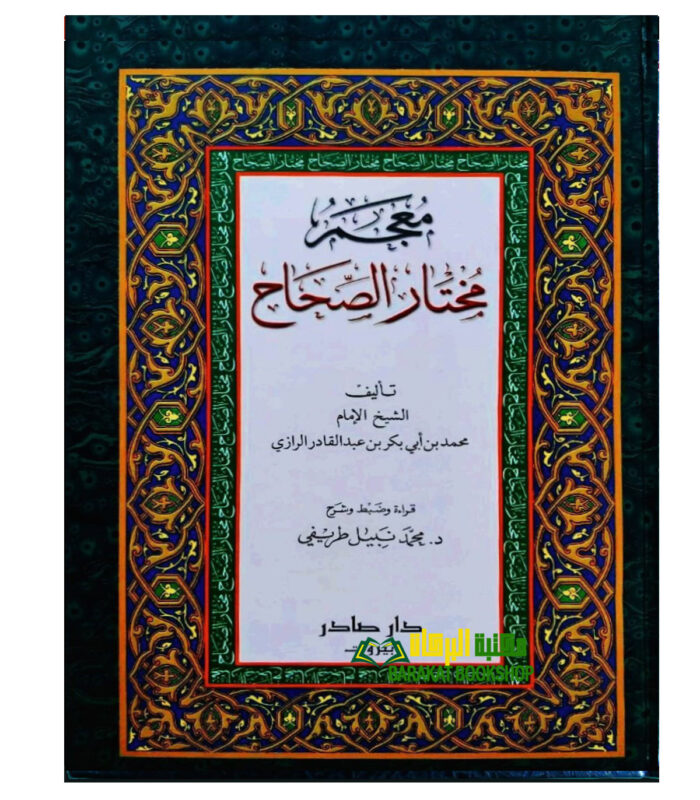 مختار الصحاح مختار الصحاح مختار الصحاح مختار الصحاح
مُعْجَمُ
مُخْتَار الصِّحَاح
تأليف
الشيخ الإمام
محمد بن أبي بكر بن عبد القادر الرازي
قراءة وضَبط وشَرح
د. محمّد نَبيل طريفي
دار صادر
بيروت
BARAKAT BOOKSHOP